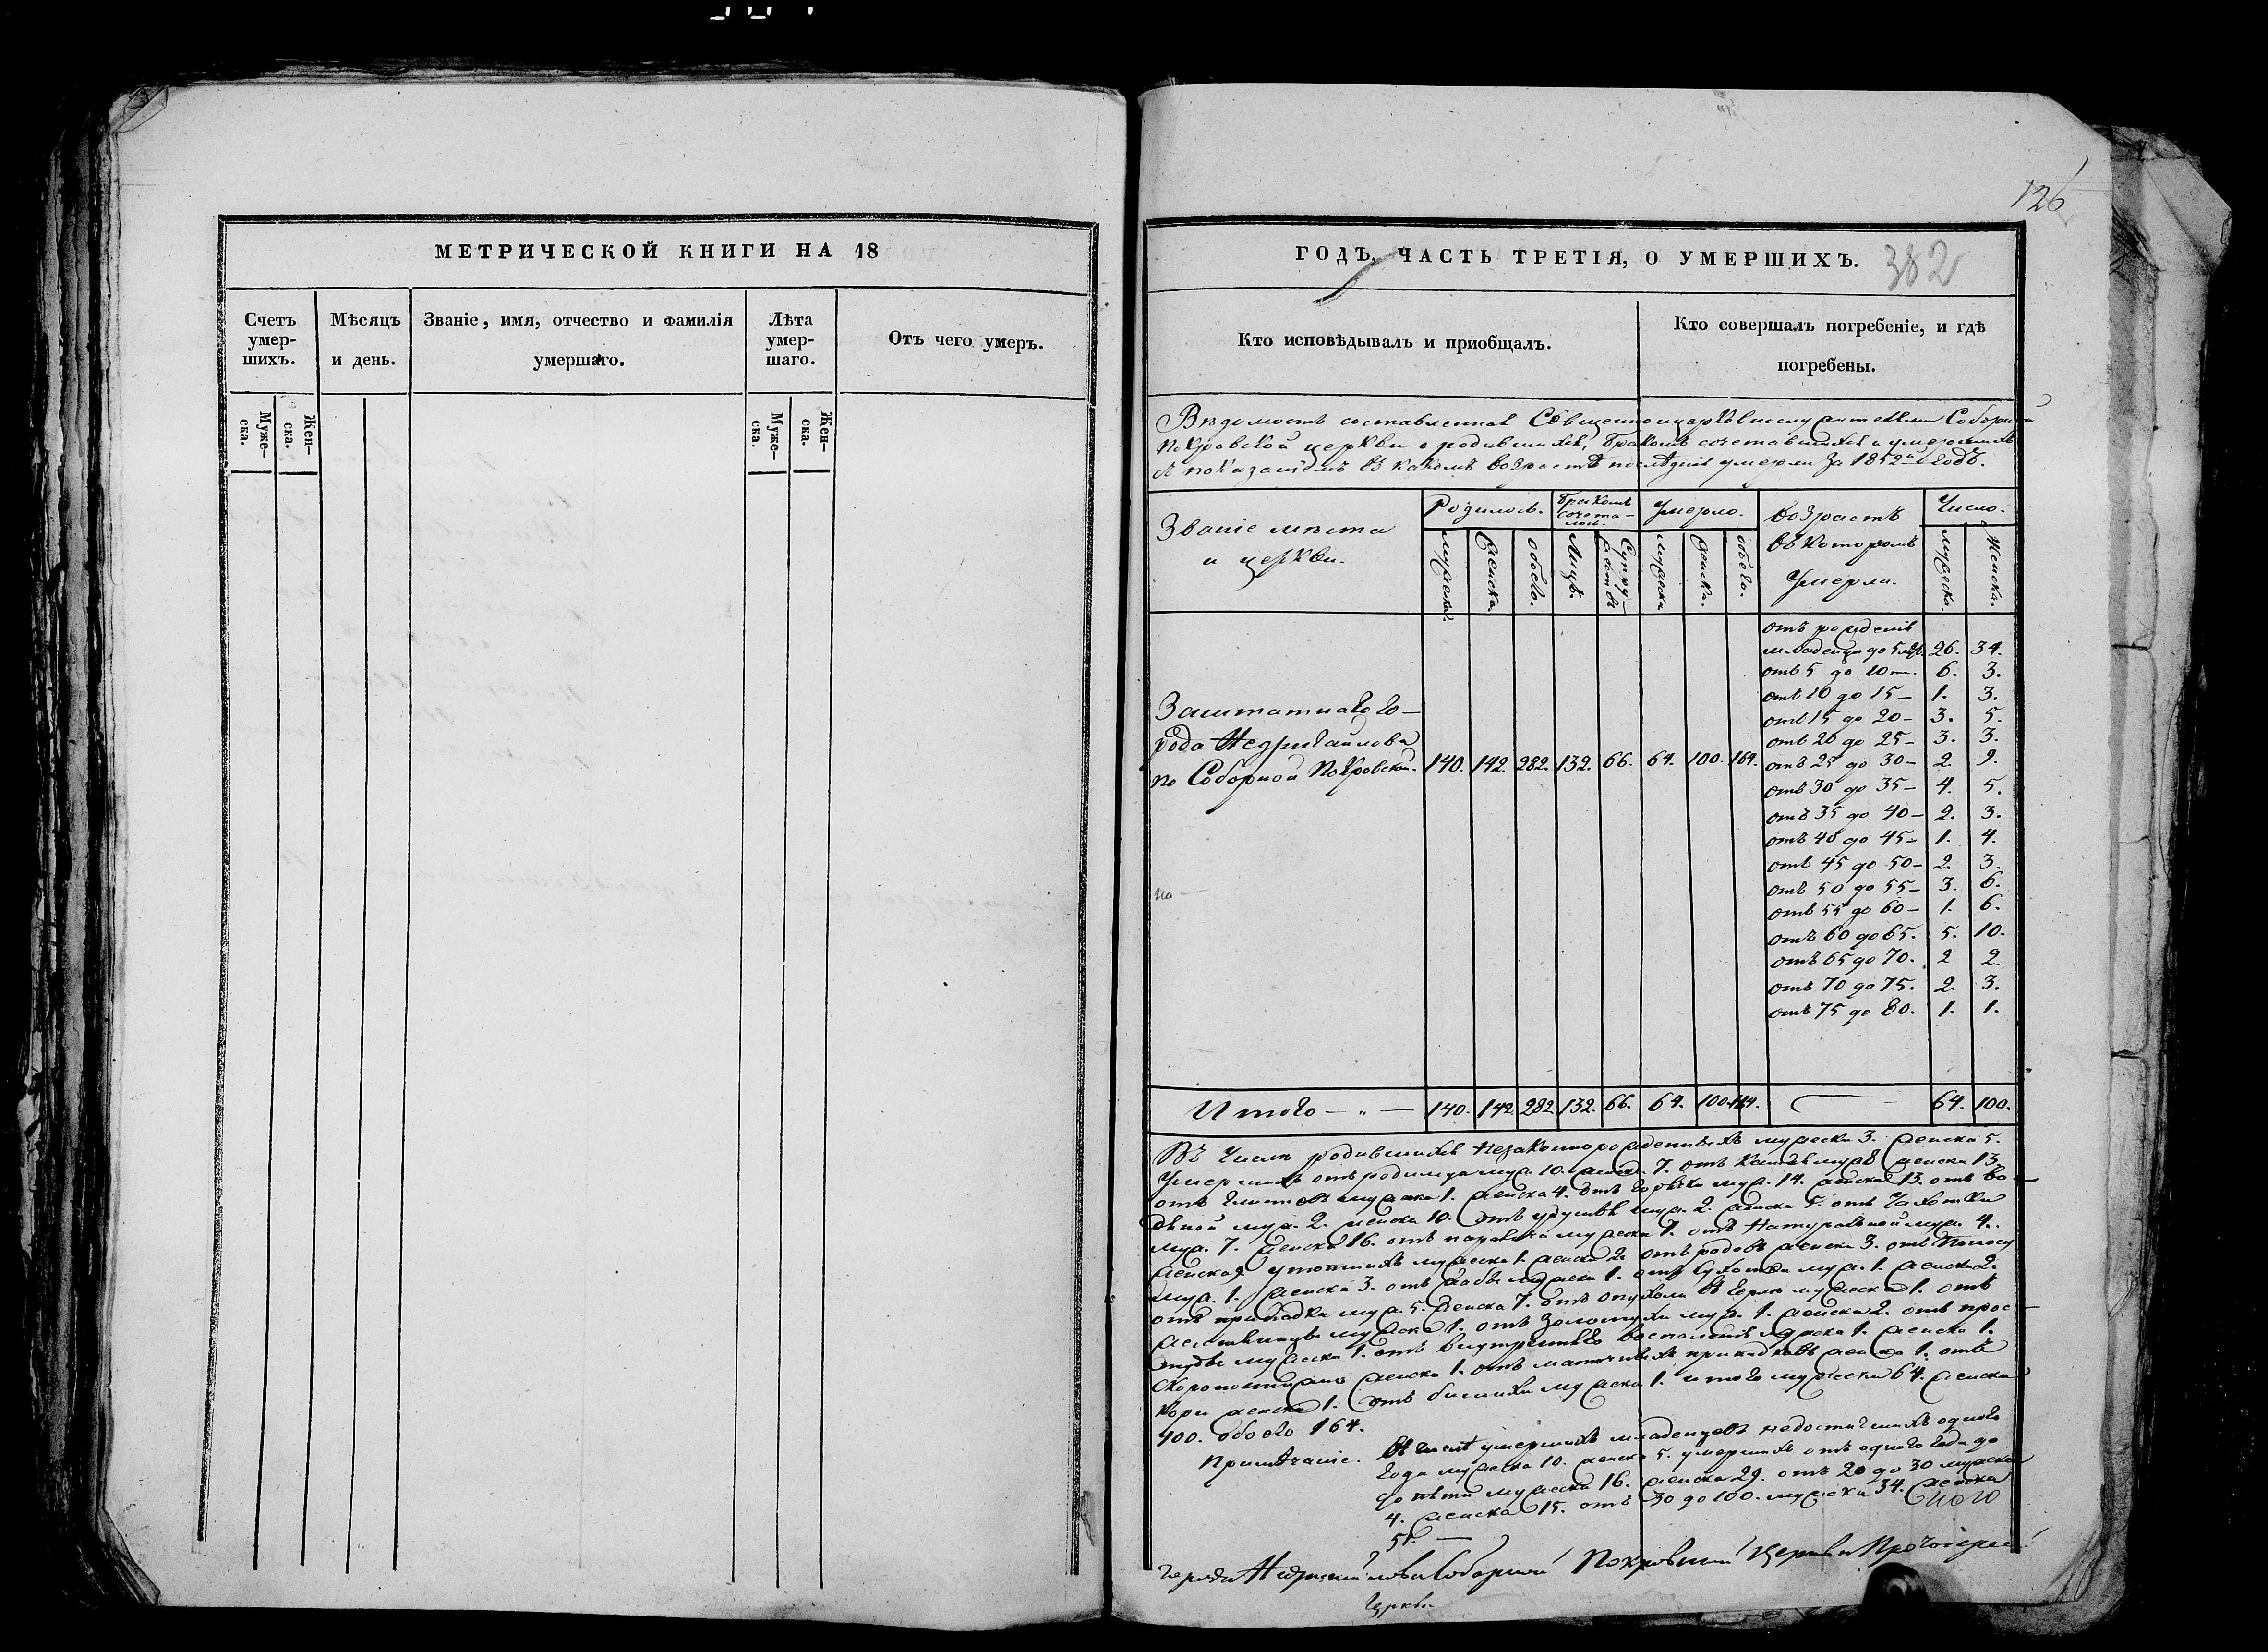 МЕТРИЧЕСКОЙ КНИГИ НА 18
Счетъ умер-шихъ.
Мѣсяцъ и день.
Званіе, имя, отчество и фамилія умершаго.
Лѣта умер-шаго.
Отъ чего умеръ.
Муже-ска.
Жен-ска.
Муже-ска.
Жен-ска.
126
ГОДЪ, ЧАСТЬ ТРЕТІЯ, О УМЕРШИХЪ. 382
Кто исповѣдывалъ и приобщалъ.
Кто совершалъ погребеніе, и гдѣ погребены.
Вѣдомость составленная Священноцерковнослужителями Соборной
Покровской церкви о родившихся, бракомъ сочетавшихся и умершихъ
съ показаніемъ въ какомъ возрастѣ послѣдніе умерли за 1852й годъ.
Званіе мѣста и церкви.
Родилось.
Бракомъ сочета-лось.
Умерло.
Возрастъ въ которомъ умерли.
Число.
мужеска. женска. обоего. Лицъ. Супру-жествъ мужеска женска. обоего. мужеска. женска.
отъ рожденія
младенцы до 5 26. 34.
отъ 5 до 10 6. 3.
отъ 10 до 15 – 1. 3.
отъ 15 до 20 – 3. 5.
отъ 20 до 25 – 3. 3.
отъ 25 до 30 – 2. 9.
отъ 30 до 35 – 4. 5.
отъ 35 до 40 – 2. 3.
отъ 40 до 45 – 1. 4.
отъ 45 до 50 – 2. 3.
отъ 50 до 55 – 3. 6.
отъ 55 до 60 – 1. 6.
отъ 60 до 65. 5. 10.
отъ 65 до 70. 2 2.
отъ 70 до 75. 2. 3.
отъ 75 до 80. 1. 1.
Заштатнаго го-
рода Недригайлова
по Соборной Покровской. 140. 142. 282. 132. 66. 64. 100. 164.
на –
Итого – „ – 140. 142 282 132. 66. 64. 100. 164. 64. 100.
Въ числѣ родившихся незаконнорожденныхъ мужеска 3. женска 5.
Умершихъ отъ родимца муж. 10. женска 7. отъ кашля муж 8 женска 13
отъ глистовъ мужска 1. женска 4. отъ горячки муж. 14. женска 13. отъ во-
дяной муж. 2. женска 10. отъ удушья муж. 2. женска 5. отъ чахотки
муж. 7. женска 16. отъ паралича мужеска 1. отъ натуральной муж. 4.
женска утопшихъ мужеска 1. женска 2. отъ родовъ женска 3. отъ поносу
муж. 1. женска 3. отъ жабы мужеска 1. отъ сухотки муж. 1. женска 2.
отъ припадка муж. 5. женска 7. отъ опухоли въ горлѣ мужеска 1. отъ
мужска 1. отъ золотухи муж. 1. женска 2. отъ прос-
туды мужеска 1. отъ внутренняго воспаленія мужска 1. женска 1.
скоропостижно женска 1. отъ маточныхъ припадковъ женска 1. отъ
кори женска 1. отъ мужска 1. итого мужеска 64. женска
100. обоего 164.
Примѣчаніе. Въ числѣ умершихъ младенцевъ недостигшихъ одного
года мужеска 10. женска 5. умершихъ отъ одного года до
до пяти мужеска 16. женска 29. отъ 20 до 30 мужска
4. женска 15. отъ 30 до 100. мужска 34. женска
51. –
города Недригайлова Соборной Покровской Церкви Протоіерей